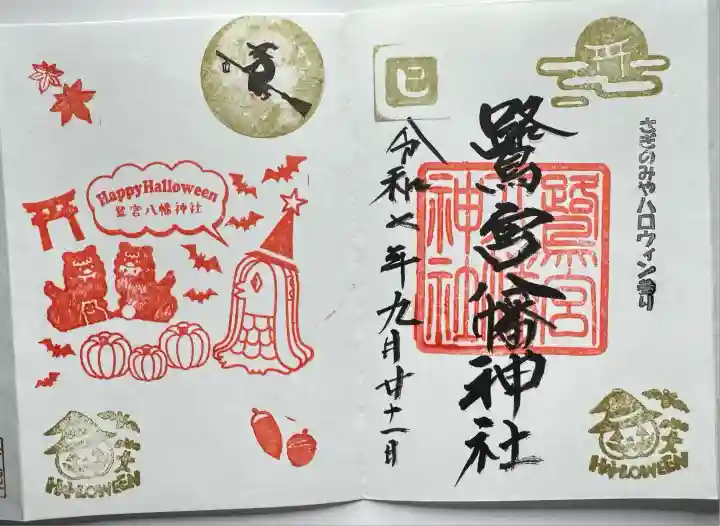 さぎのみやハロウィン
鷺宮八幡神社
鷺宮
八幡
神社
巳
令和七年九月廿十一日
HALLOWEEN
HappyHalloween
鷺宮八幡神社
HALLOWEEN